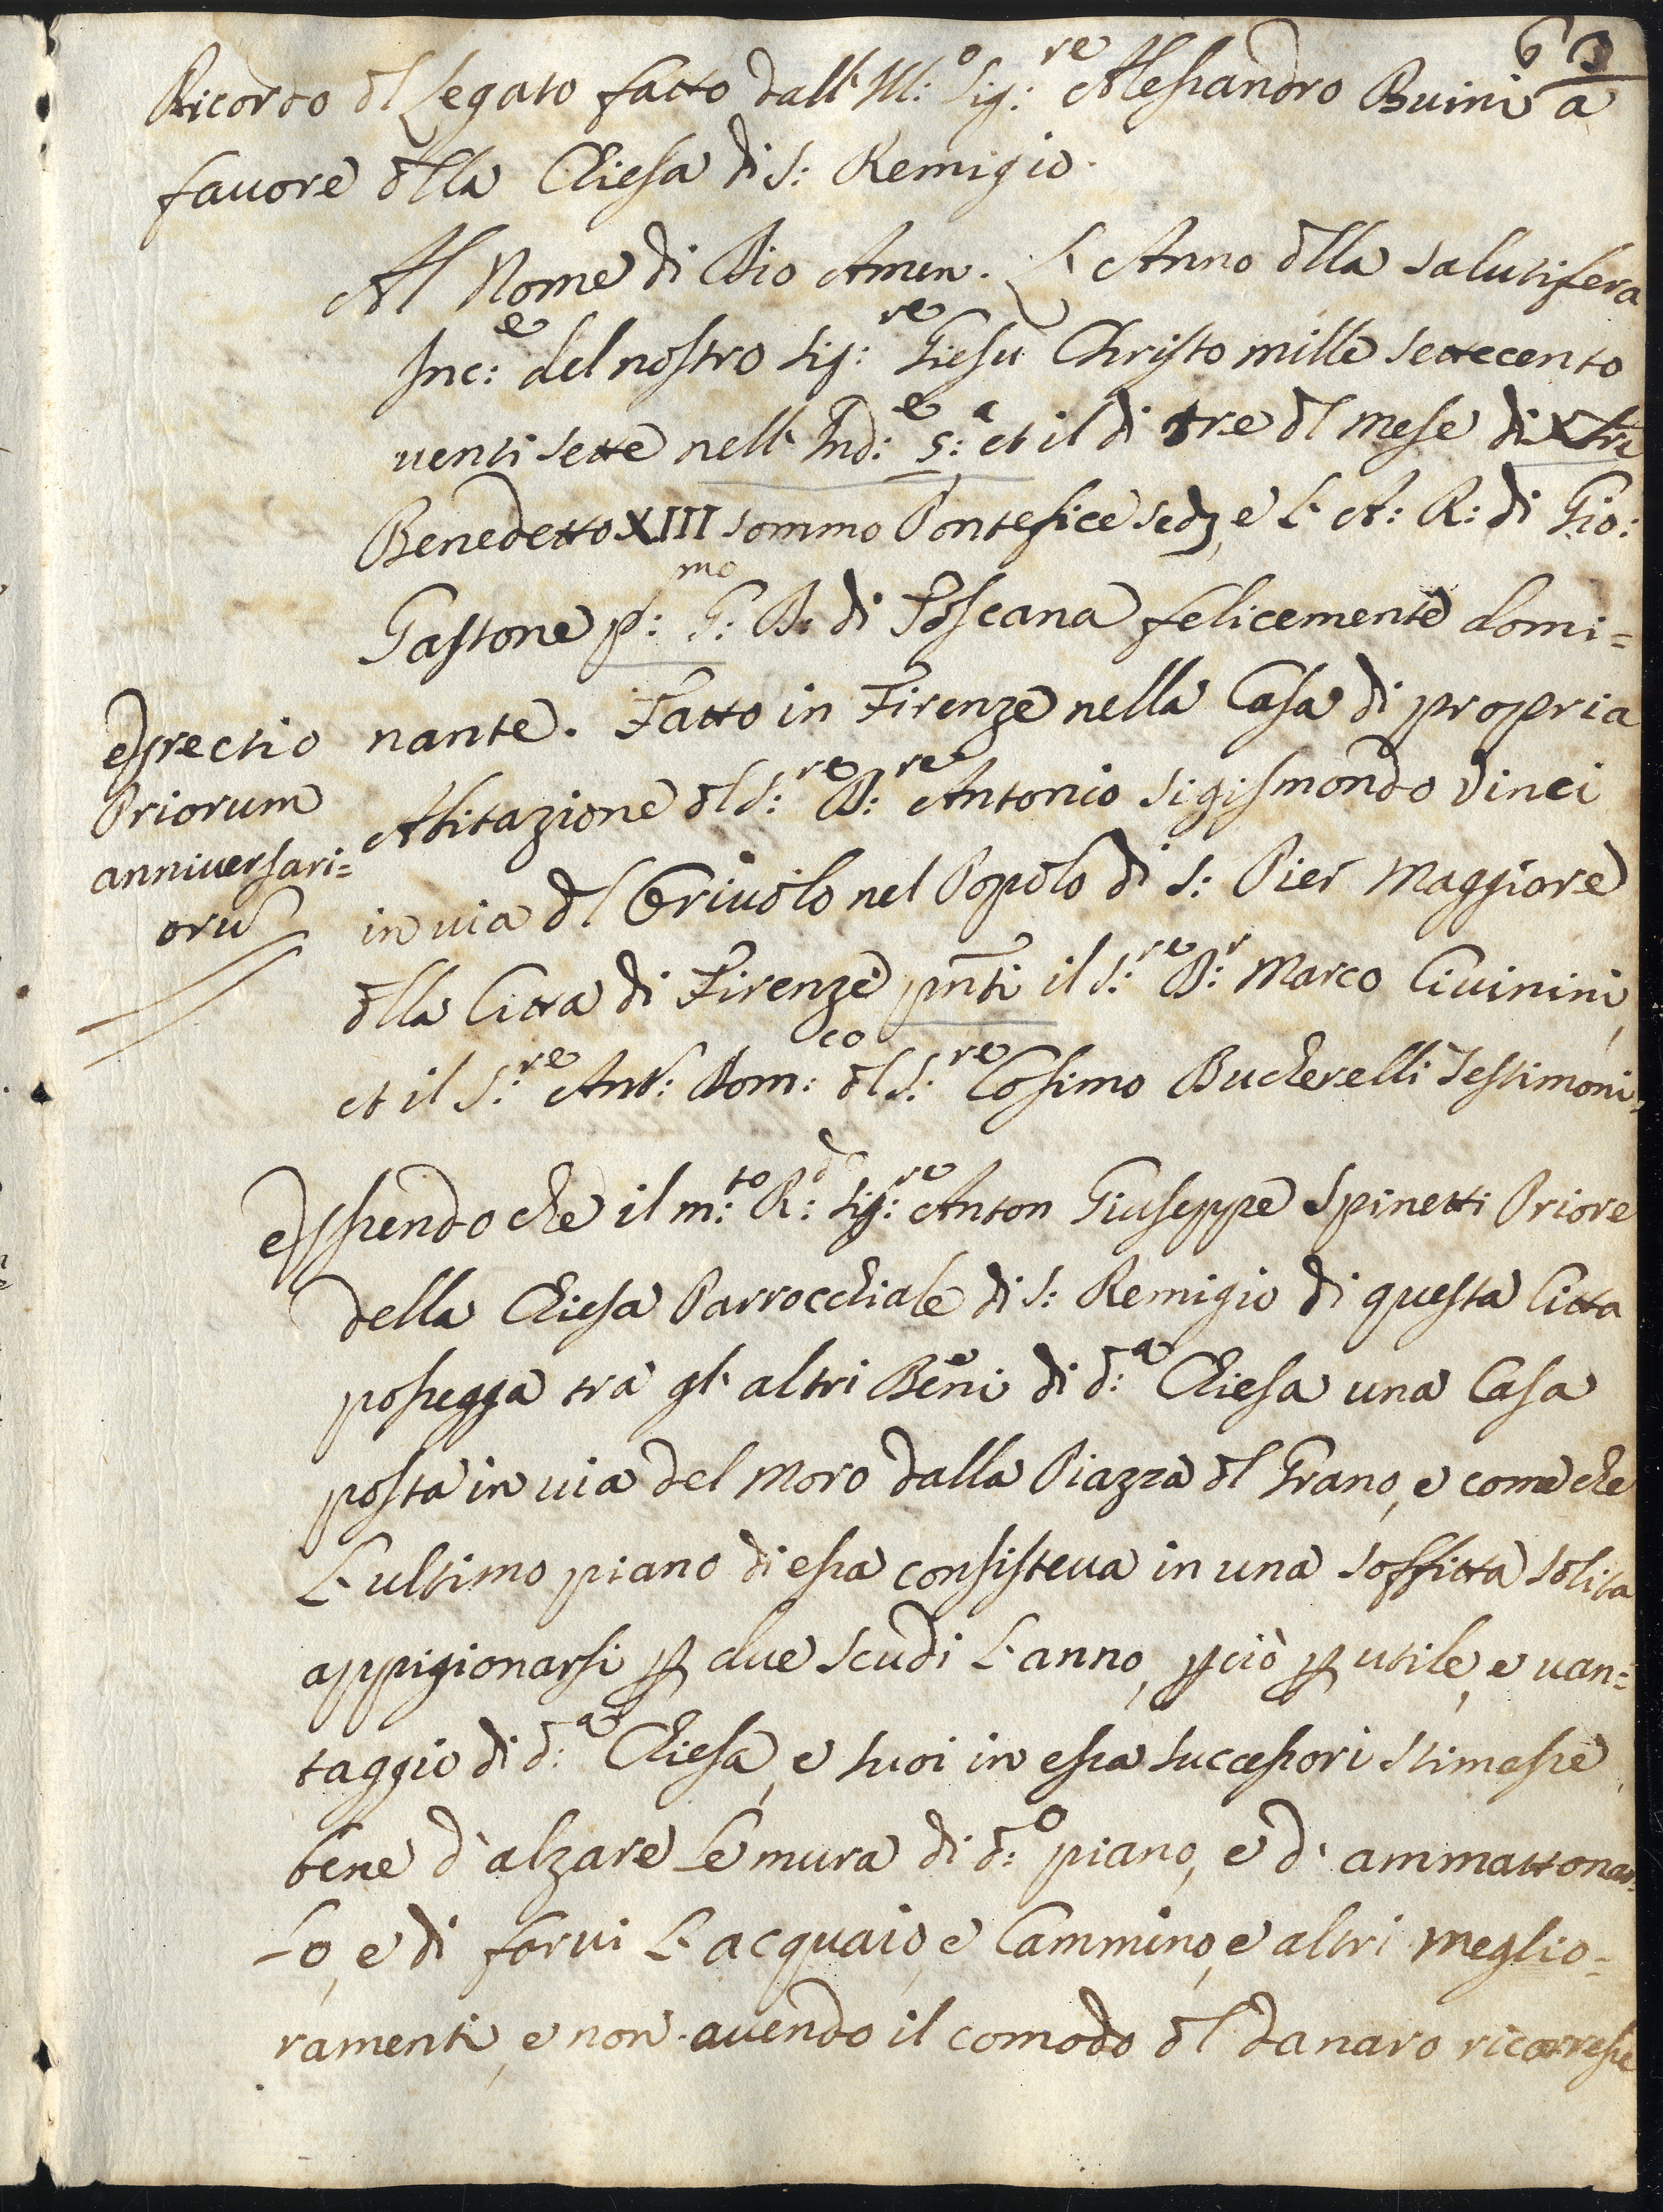 63
Ricordo dl Legato fatto dall' Ill:o Sig:re Alessandro Buini a
fauore dlla Chiesa di S: Remigio.
Al Nome di Dio Amen. L'Anno dlla salutifera
Inc:e del nostro Sig:re Giesu Christo mille settecento
uenti sette nell' Ind:e 5:a et il di tre dl mese di Xbre
Benedetto XIII sommo Pontefice sedz, e L'A: R: di Gio:
Gastone p:mo G: D: di Toscana felicemente domi=
nante. Fatto in Firenze nella Casa di propria
Abitazione dl S:re D:re Antonio Sigismondo Vinci
in uia dl Criuolo nel Popolo di S: Pier Maggiore
dlla Citta di Firenze pnti il S:re D:r Marco Ciuinini,
et il S:re Ant: Dom:co dl S:re Cosimo Bucherelli Testimoni.
Priorum
anniuersari=
oru
Essendo che il m:to R:do Sig:re Anton Giuseppe Spinetti Priore
della Chiesa Parrocchiale di S: Remigio di questa Citta
possegga tra gl'altri Beni di d:a Chiesa una Casa
posta in uia del Moro dalla Piazza dl Grano, e come che
L'ultimo piano di essa consisteua in una soffitta solita
appigionarsi p due scudi L'anno, pciò p utile, e uan=
taggio di d:a Chiesa, e suoi in essa successori stimasse
bene d'alzare Le mura di d:o piano, e d'ammattonar=
Lo, e di farui L'acquaio, e Cammino, e altri meglio=
ramenti, e non auendo il comodo dl danaro ricorresse